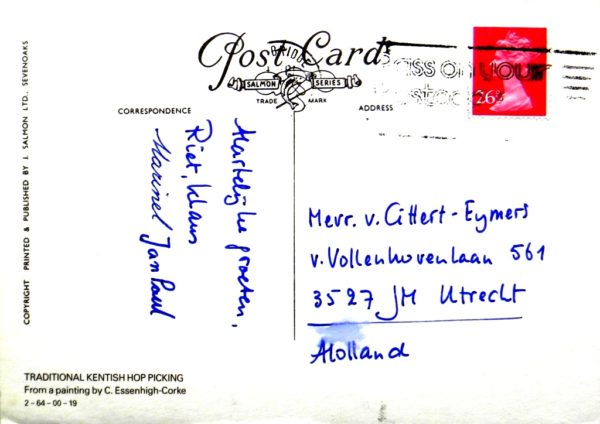 Post Card
BRIDGE
SALMON SERIES
TRADE MARK
CORRESPONDENCE
ADDRESS
Hartelijke groeten,
Riet, Klaus
Marinel JanPaul
Pass on your
postcode
26
Mevr. v. Cittert-Eymers
v. Vollenhovenlaan 561
3527 JM Utrecht
Holland
COPYRIGHT PRINTED & PUBLISHED BY J. SALMON LTD., SEVENOAKS
TRADITIONAL KENTISH HOP PICKING
From a painting by C. Essenhigh-Corke
2-64-00-19